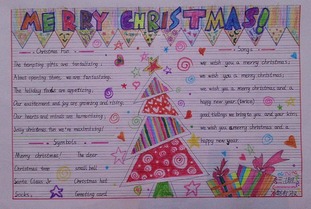 MERRY CHRISTMAS!
Christmas Fun
The tempting gifts are tantalizing;
About opening them, we are fantasizing;
The holiday foods are appetizing;
Our excitement and joy are growing and rising;
Our hearts and minds are humanizing;
Jolly christmas fun we're maximizing!
Symbols
Merry christmas! The deer
Christmas tree small bell
Santa Claus Christmas hat
Socks Greeting card
Songs
we wish you a merry christmas;
we wish you a merry christmas;
we wish you a merry christmas and a
happy new year. (twice)
good tidings we bring to you and your kin;
we wish you a merry christmas and a
happy new year.